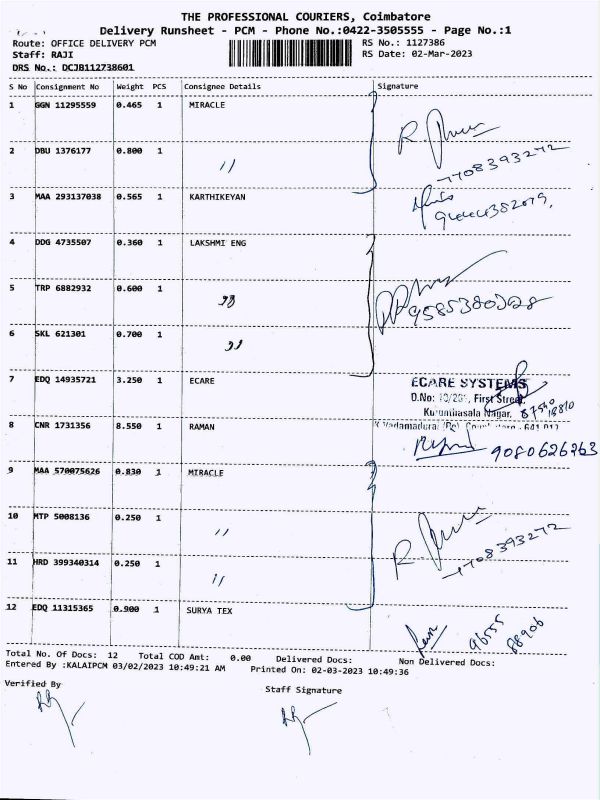 THE PROFESSIONAL COURIERS, Coimbatore
Delivery Runsheet - PCM - Phone No.:0422-3505555 - Page No.:1
Route: OFFICE DELIVERY PCM
RS No.: 1127386
Staff: RAJI
RS Date: 02-Mar-2023
DRS No.: DCJB112738601
S No Consignment No Weight PCS Consignee Details Signature
1 GGN 11295559 0.465 1 MIRACLE
2 DBU 1376177 0.800 1 "
7708393272
3 MAA 293137038 0.565 1 KARTHIKEYAN
4 DDG 4735507 0.360 1 LAKSHMI ENG
5 TRP 6882932 0.600 1 "
6 SKL 621301 0.700 1 "
7 EDQ 14935721 3.250 1 ECARE
ECARE SYSTEMS
First Street,
Nagar,
8 CNR 1731356 8.550 1 RAMAN
9080626263
9 MAA 570075626 0.830 1 MIRACLE
10 MTP 5008136 0.250 1 "
7708393272
11 HRD 399340314 0.250 1 "
12 EDQ 11315365 0.900 1 SURYA TEX
96555
88906
Total No. Of Docs: 12 Total COD Amt: 0.00 Delivered Docs: Non Delivered Docs:
Entered By :KALAIPCM 03/02/2023 10:49:21 AM Printed On: 02-03-2023 10:49:36
Verified By
Staff Signature